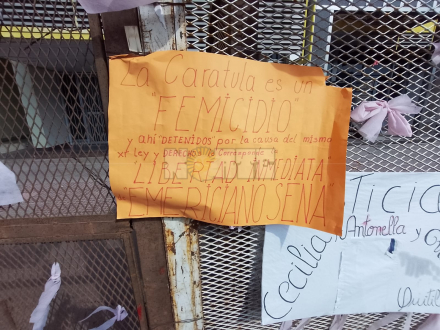 La Caratula es un
"FEMICIDIO"
y ahi DETENIDOS por la causa del mismo
xr ley y DERECHO le Corresponde
LIBERTAD INMEDIATA
"EMERICIANO SENA"
TICIA
Cecilia, Antonella y